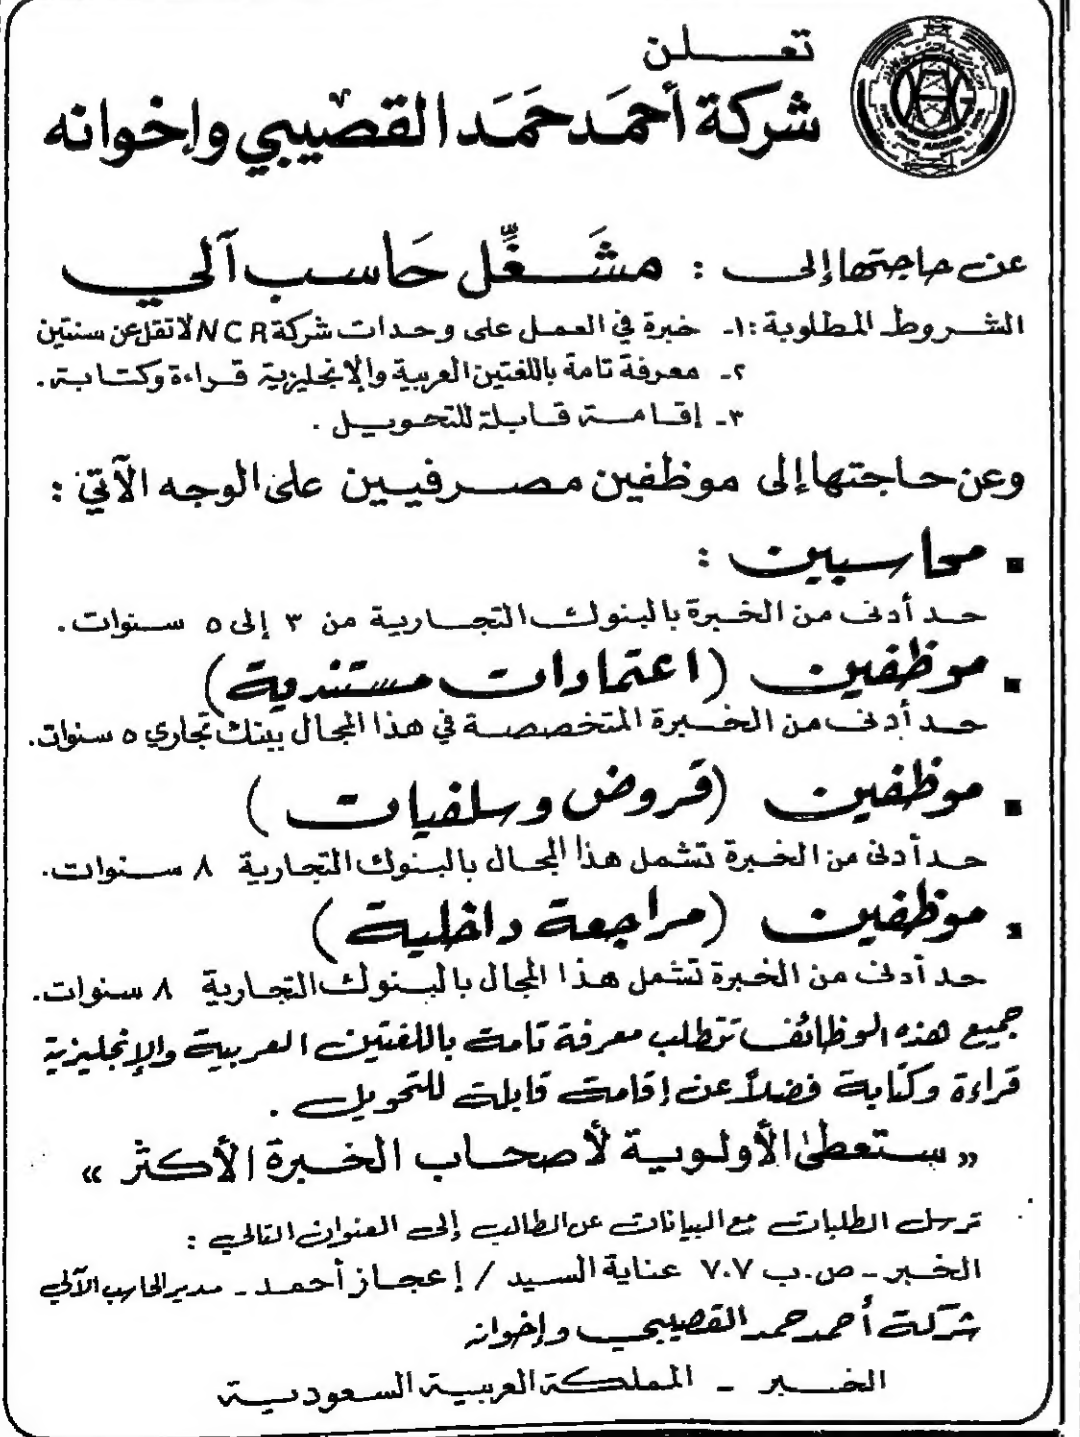 تعلن
شركة أحمَد حَمَد القصيبي وإخوانه
عن حاجتها إلى : مشَغِّل حَاسب آلي
الشروط المطلوبة : ١- خبرة في العمل على وحدات شركة NCR لا تقل عن سنتين
٢- معرفة تامة باللغتين العربية والإنجليزية قراءة وكتابة .
٣- إقامة قابلة للتحويل .
وعن حاجتها إلى موظفين مصرفيين على الوجه الآتي :
▪ محاسبين :
حد أدنى من الخبرة بالبنوك التجارية من ٣ إلى ٥ سنوات .
▪ موظفين (اعتمادات مستندية)
حد أدنى من الخبرة المتخصصة في هذا المجال ببنك تجاري ٥ سنوات .
▪ موظفين (قروض وسلفيات)
حد أدنى من الخبرة تشمل هذا المجال بالبنوك التجارية ٨ سنوات .
▪ موظفين (مراجعة داخلية)
حد أدنى من الخبرة تشمل هذا المجال بالبنوك التجارية ٨ سنوات .
جميع هذه الوظائف تتطلب معرفة تامة باللغتين العربية والإنجليزية
قراءة وكتابة فضلاً عن إقامة قابلة للتحويل .
« ستعطى الأولوية لأصحاب الخبرة الأكثر »
ترسل الطلبات مع البيانات عن الطالب إلى العنوان التالي :
الخبر - ص.ب ٧٠٧ عناية السيد / إعجاز أحمد - مدير الحاسب الآلي
شركة أحمد حمد القصيبي وإخوانه
الخبر - المملكة العربية السعودية